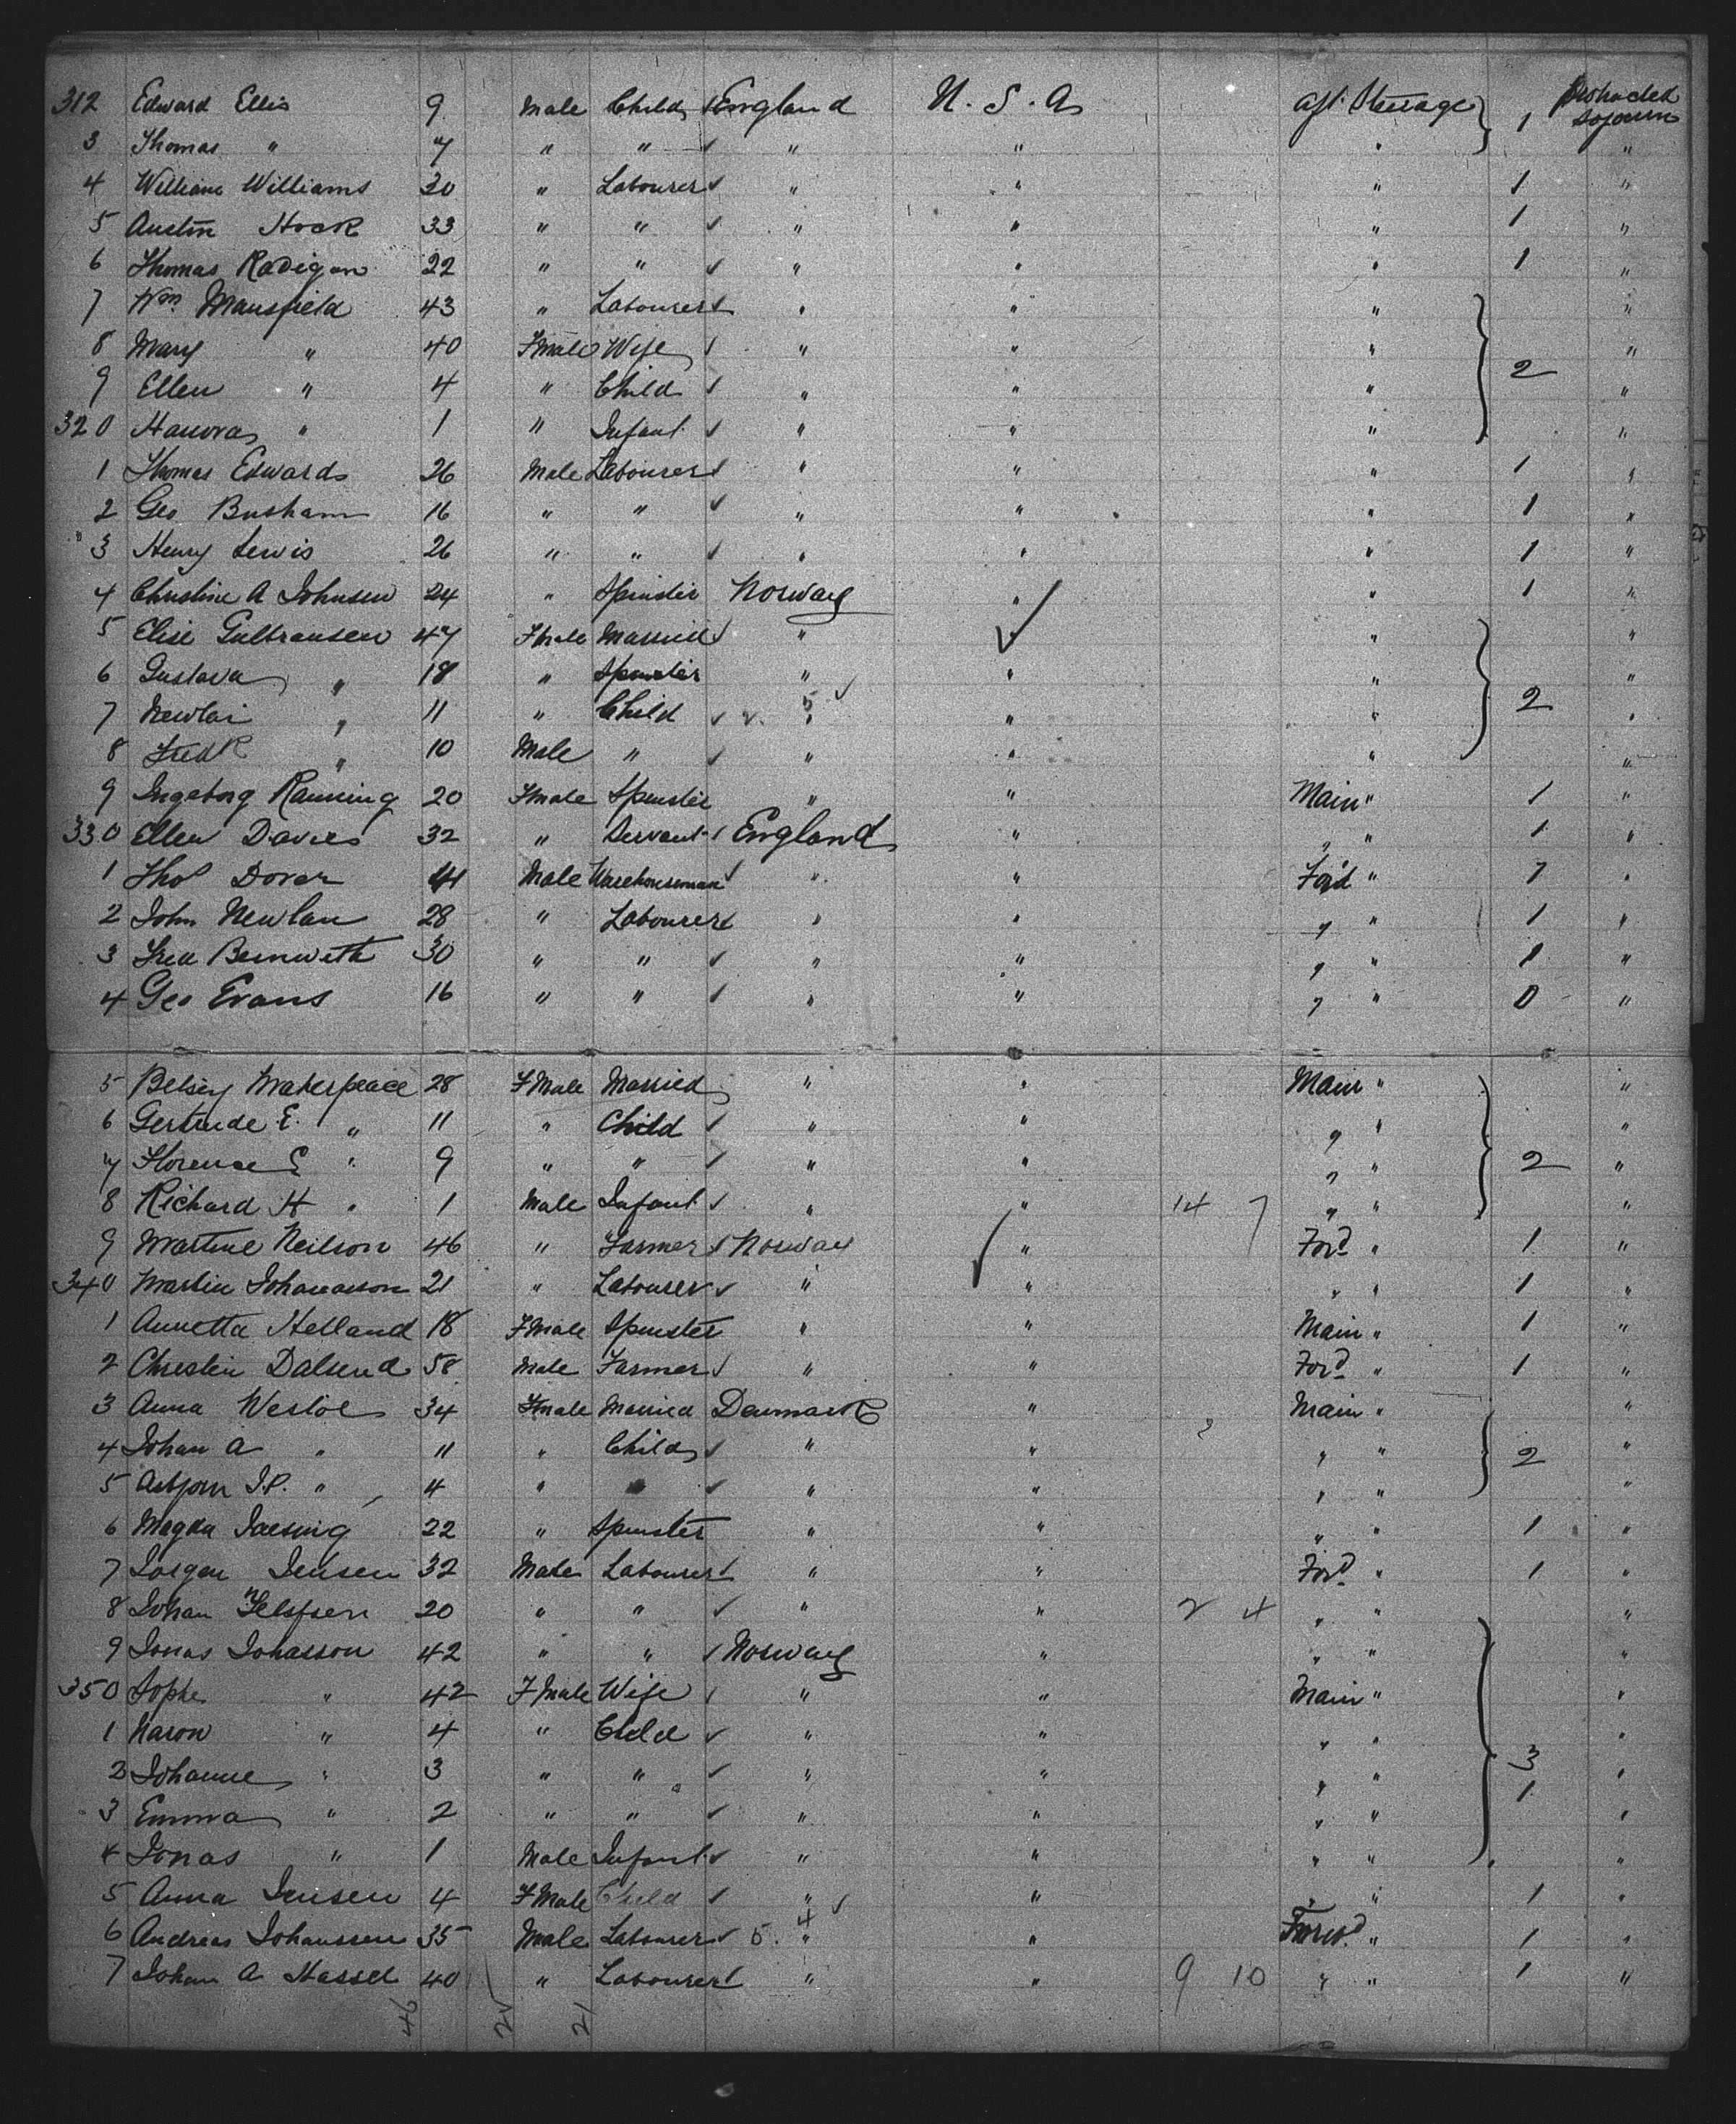 312 Edward Ellis 9 Male Child England U. S. A. aft. Steerage 1 Protracted sojourn
3 Thomas " 7 " " " " " "
4 William Williams 30 " Labourer " " " 1 "
5 Austin Hock 33 " " " " " 1 "
6 Thomas Radigan 22 " " " " " 1 "
7 Wm. Mansfield 43 " Labourer " " " "
8 Mary " 40 Fmale Wife " " " 2 "
9 Ellen " 4 " Child " " " "
320 Hanora " 1 " Infant " " " "
1 Thomas Edwards 26 Male Labourer " " " 1 "
2 Geo Busham 16 " " " " " 1 "
3 Henry Lewis 26 " " " " " 1 "
4 Christine A Johnsen 24 " Spinster Norway " " 1 "
5 Elise Gulbransen 47 Fmale Married " " " "
6 Gustava " 18 " Spinster " " " 2 "
7 " 11 " Child " " " "
8 Fredk " 10 Male " " " " "
9 Ingeborg Ranning 20 Fmale Spinster " " Main " 1 "
330 Ellen Davies 32 " Servant England " " " 1 "
1 Thos Dover 41 Male Warehouseman " " Ford " 1 "
2 John Newlan 28 " Labourer " " " " 1 "
3 Fred Bernwith 30 " " " " " " 1 "
4 Geo Evans 16 " " " " " " 0 "
5 Betsey Makepeace 28 FMale Married " " Main " "
6 Gertrude E. " 11 " Child " " " " "
7 Florence E " 9 " " " " " " 2 "
8 Richard H " 1 Male Infant " " 14 7 " " "
9 Martine Neilson 46 " Farmer Norway " Ford " 1 "
340 Martin Johanasson 21 " Labourer " " " " 1 "
1 Annetta Helland 18 FMale Spinster " " Main " 1 "
2 Christin Dalsend 58 Male Farmer " " Ford " 1 "
3 Anna Westoe 34 Fmale Married Denmark " Main " "
4 Johan A " 11 " Child " " " " 2 "
5 Asbjorn J.P. " 4 " " " " " " "
6 Magda 22 " Spinster " " " " 1 "
7 Jorgen Jensen 32 Male Labourer " " Ford " 1 "
8 Johan 20 " " " " 2 4 " " "
9 Jonas Johasson 42 " " Norway " " " "
350 Sophe " 42 FMale Wife " " Main " "
1 Naron " 4 " Child " " " " "
2 Johanne " 3 " " " " " " 3 "
3 Emma " 2 " " " " " " 1 "
4 Jonas " 1 Male Infant " " " " "
5 Anna Jensen 4 FMale Child " " " 1 "
6 Andreas Johanssen 35 Male Labourer 5. 4 " " Forwd. " 1 "
7 Johan A Hassel 40 " Labourer " " 9 10 " " 1 "
46 25 21